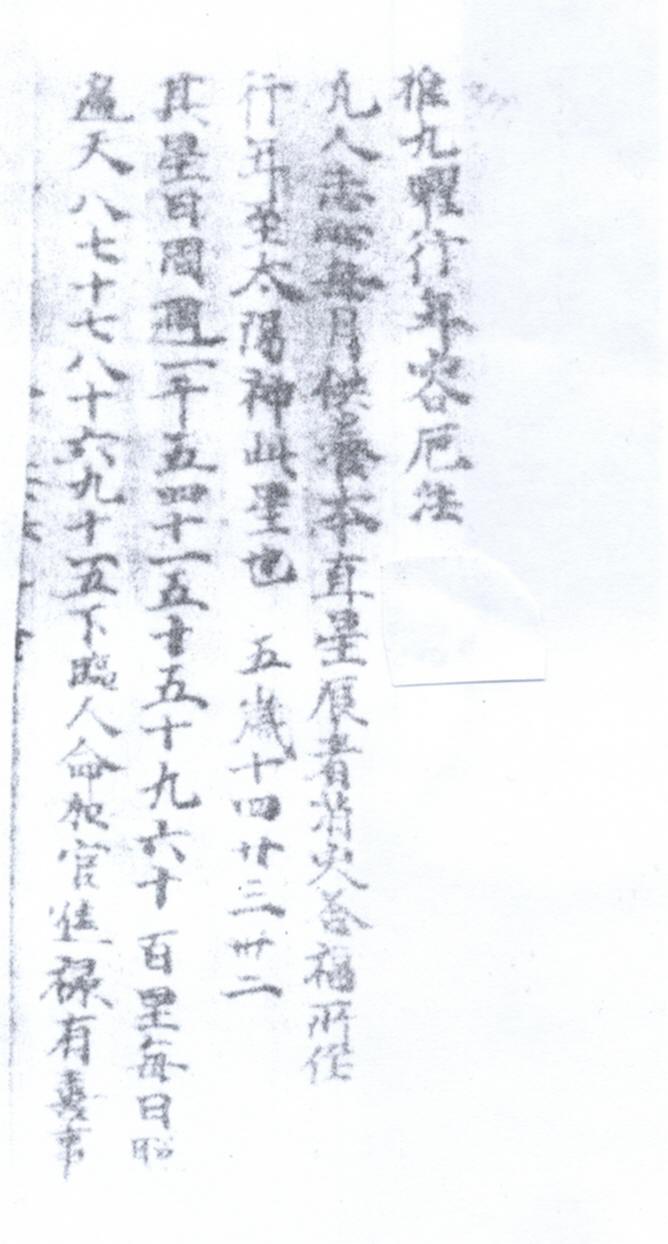 推九曜行年容厄法
凡人志心每月供養本直星辰者消灾答福所任
行年至太陽神此星也 五歲十四廿三卅二
其星日周迴一千五四十一五十五十九六十 百里每日照
遍天八七十七八十六九十一五下臨人命加官進祿有喜事